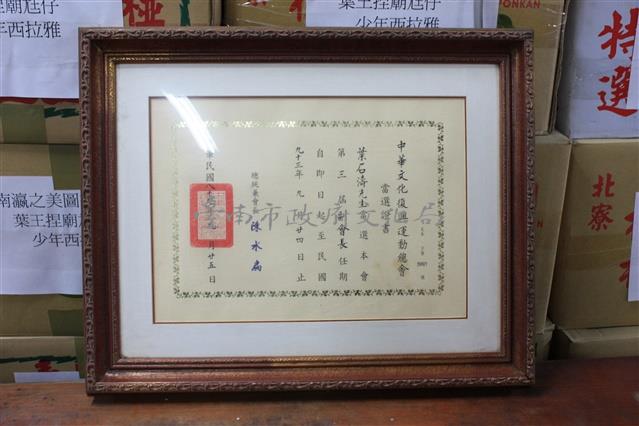 中華文化復興運動總會
當選證書
葉石濤先生當選本會
第三屆副會長任期
自即日起至民國
九十三年九月廿四日止
總統兼會長 陳水扁
臺南市政府文化局
葉王捏廟尪仔
少年西拉雅
特選
北寮
南瀛之美圖
葉王捏廟尪
少年西拉雅
PONKAN